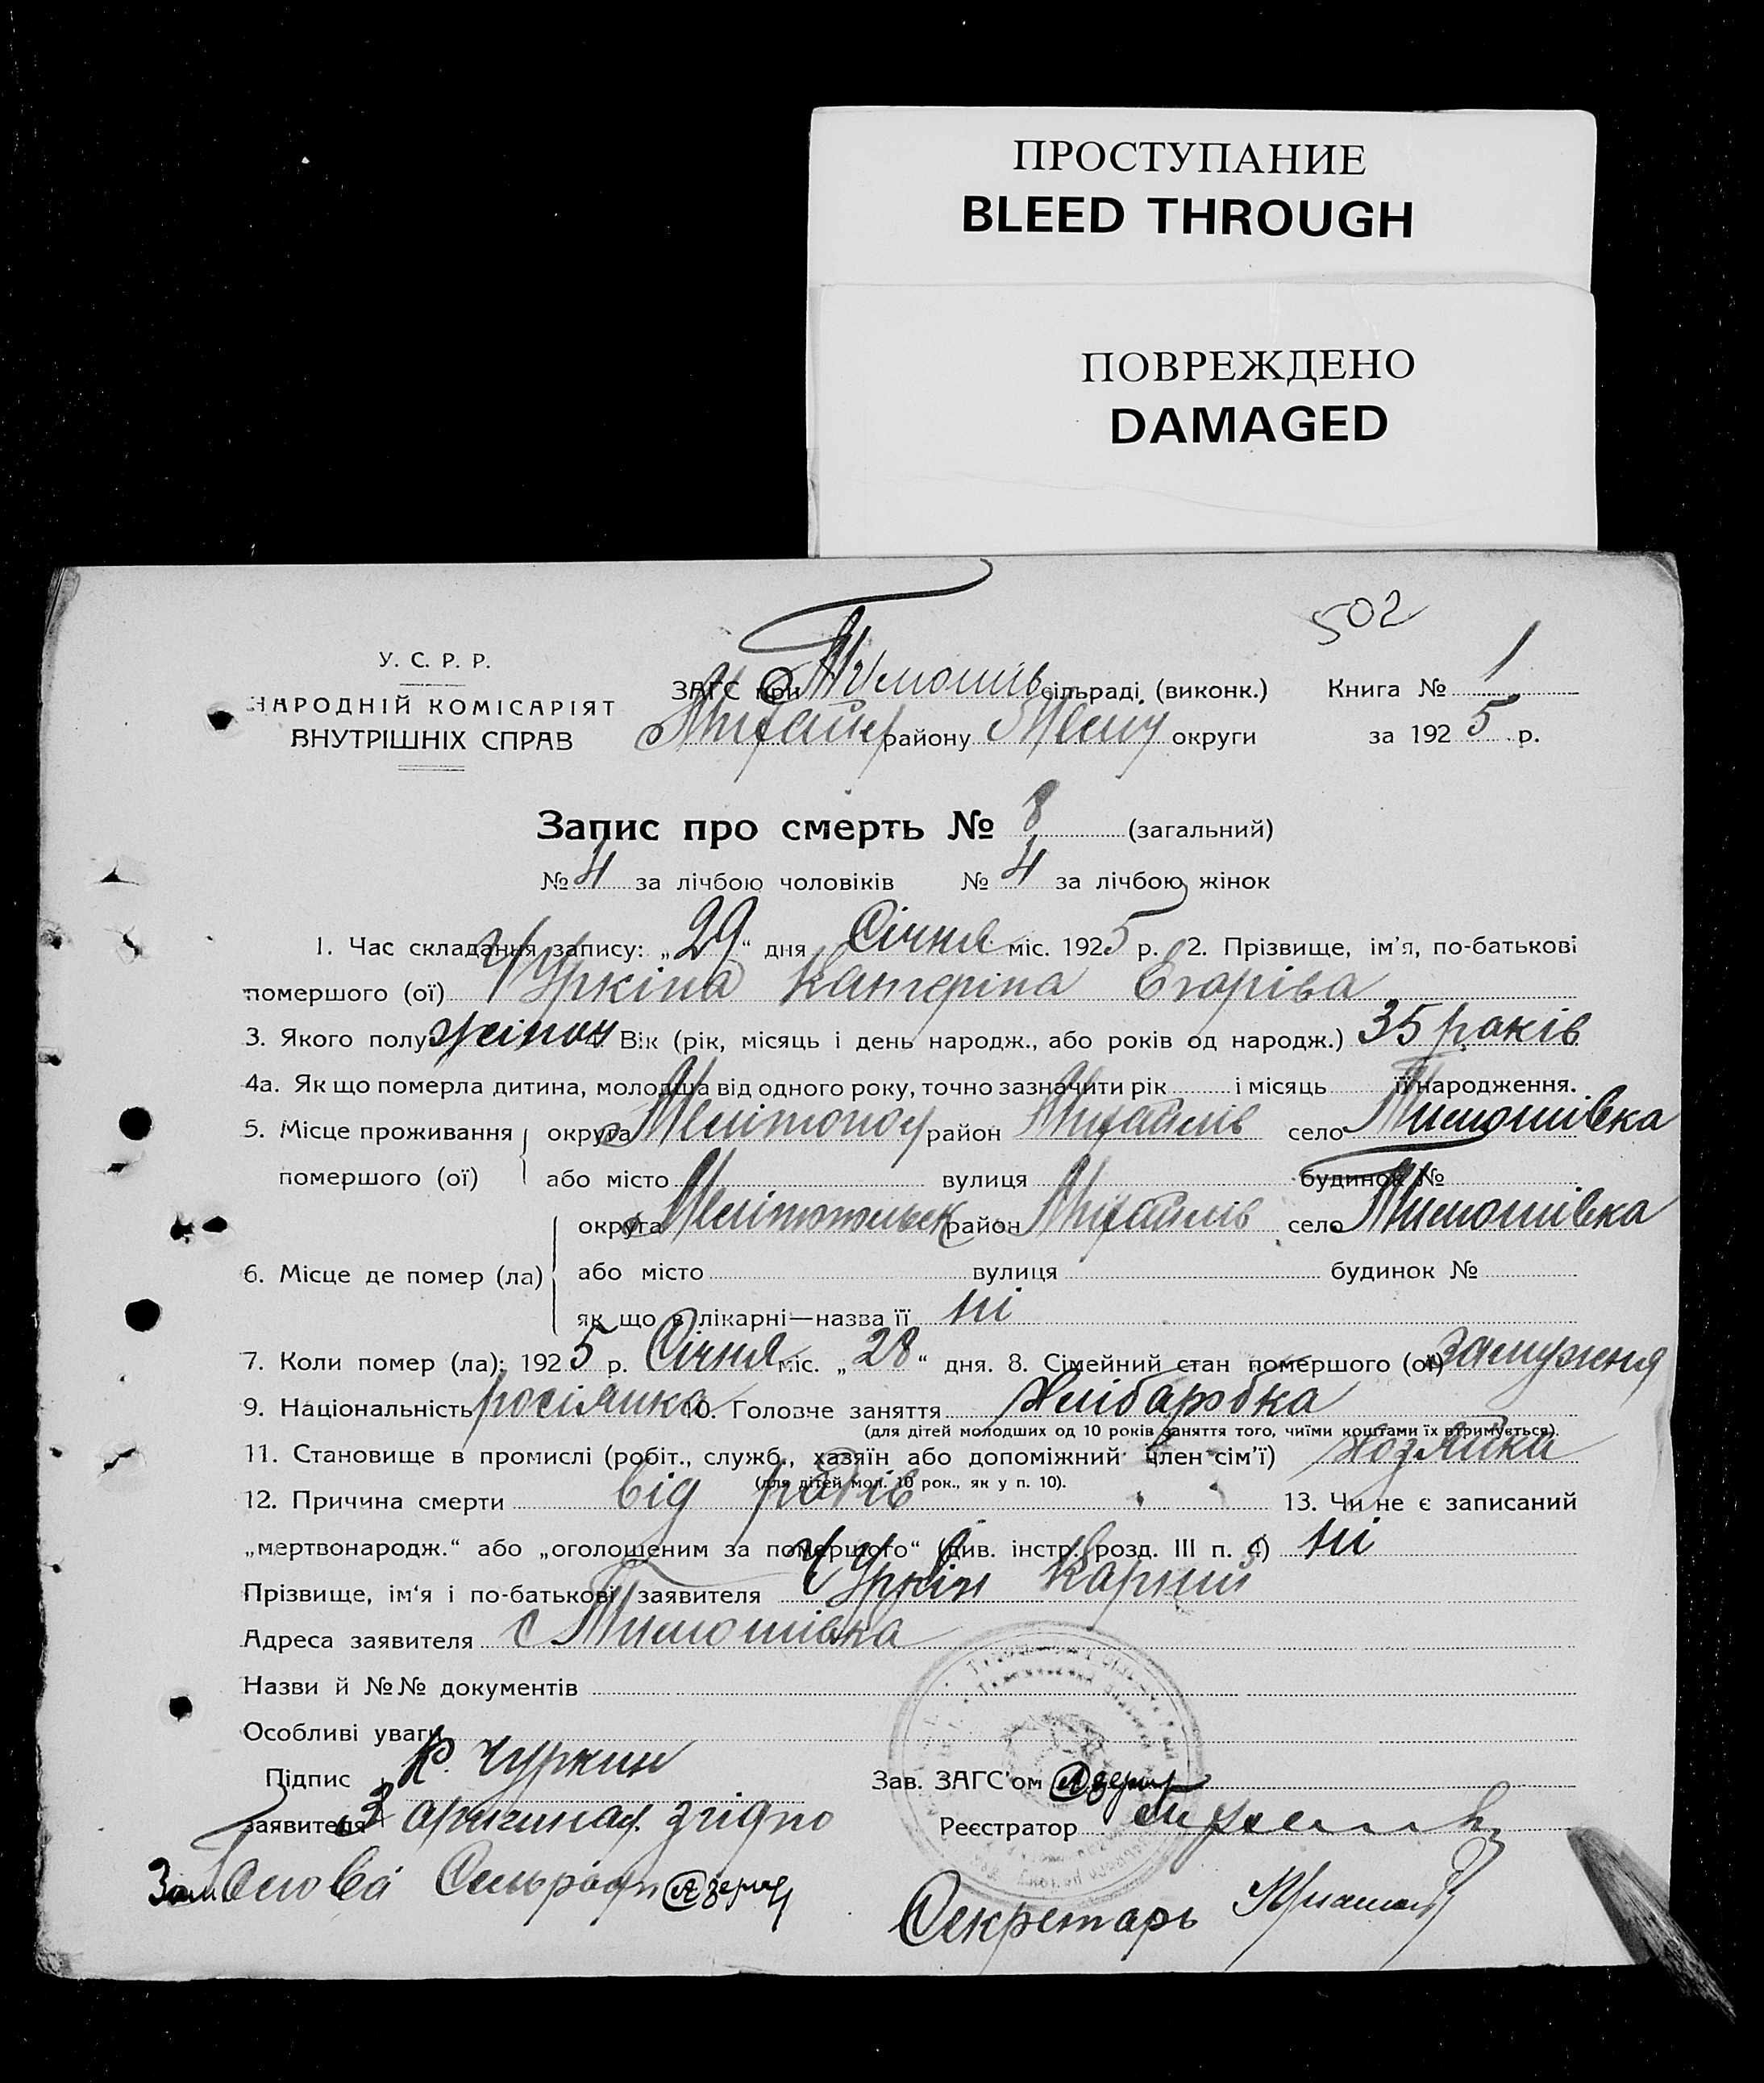 ПРОСТУПАНИЕ
BLEED THROUGH
ПОВРЕЖДЕНО
DAMAGED
502
У. С. Р. Р.
НАРОДНІЙ КОМІСАРІЯТ
ВНУТРІШНІХ СПРАВ
ЗАГС при Тимошів сільраді (виконк.) Книга № 1
Михайл району Меліт округи за 1925 р.
Запис про смерть № 8 (загальний)
№ 4 за лічбою чоловіків № 4 за лічбою жінок
1. Час складання запису: „29“ дня Січня міс. 1925 р. 2. Прізвище, ім'я, по-батькові
помершого (ої) Чуркіна Катеріна Егоріва
3. Якого полу жіноч 4. Вік (рік, місяць і день народж., або років од народж.) 35 років
4а. Як що померла дитина, молодша від одного року, точно зазначити рік і місяць її народження.
5. Місце проживання округа Мелітопол район Михайлів село Тимошівка
помершого (ої) або місто вулиця будинок №
округа Мелітопольск район Михайлів село Тимошівка
6. Місце де помер (ла) або місто вулиця будинок №
як що в лікарні—назва її ні
7. Коли помер (ла): 1925 р. Січня міс. „28“ дня. 8. Сімейний стан помершого (ої) замужня
9. Національність росіянка 10. Головне заняття Хлібаробка
(для дітей молодших од 10 років заняття того, чиїми коштами їх втримується).
11. Становище в промислі (робіт., служб., хазяїн або допоміжний член сім'ї) хозяйка
(для дітей мол. 10 рок., як у п. 10).
12. Причина смерти від родів 13. Чи не є записаний
„мертвонародж.“ або „оголошеним за помершого“ (див. інстр. розд. III п. 4) ні
Прізвище, ім'я і по-батькові заявителя Чуркін Карпий
Адреса заявителя с Тимошівка
Назви й №№ документів
Особливі уваги
Підпис К. Чуркин Зав. ЗАГС'ом
заявителя З оригиналом згідно Реєстратор
Зам Голова Сельради
Секретарь